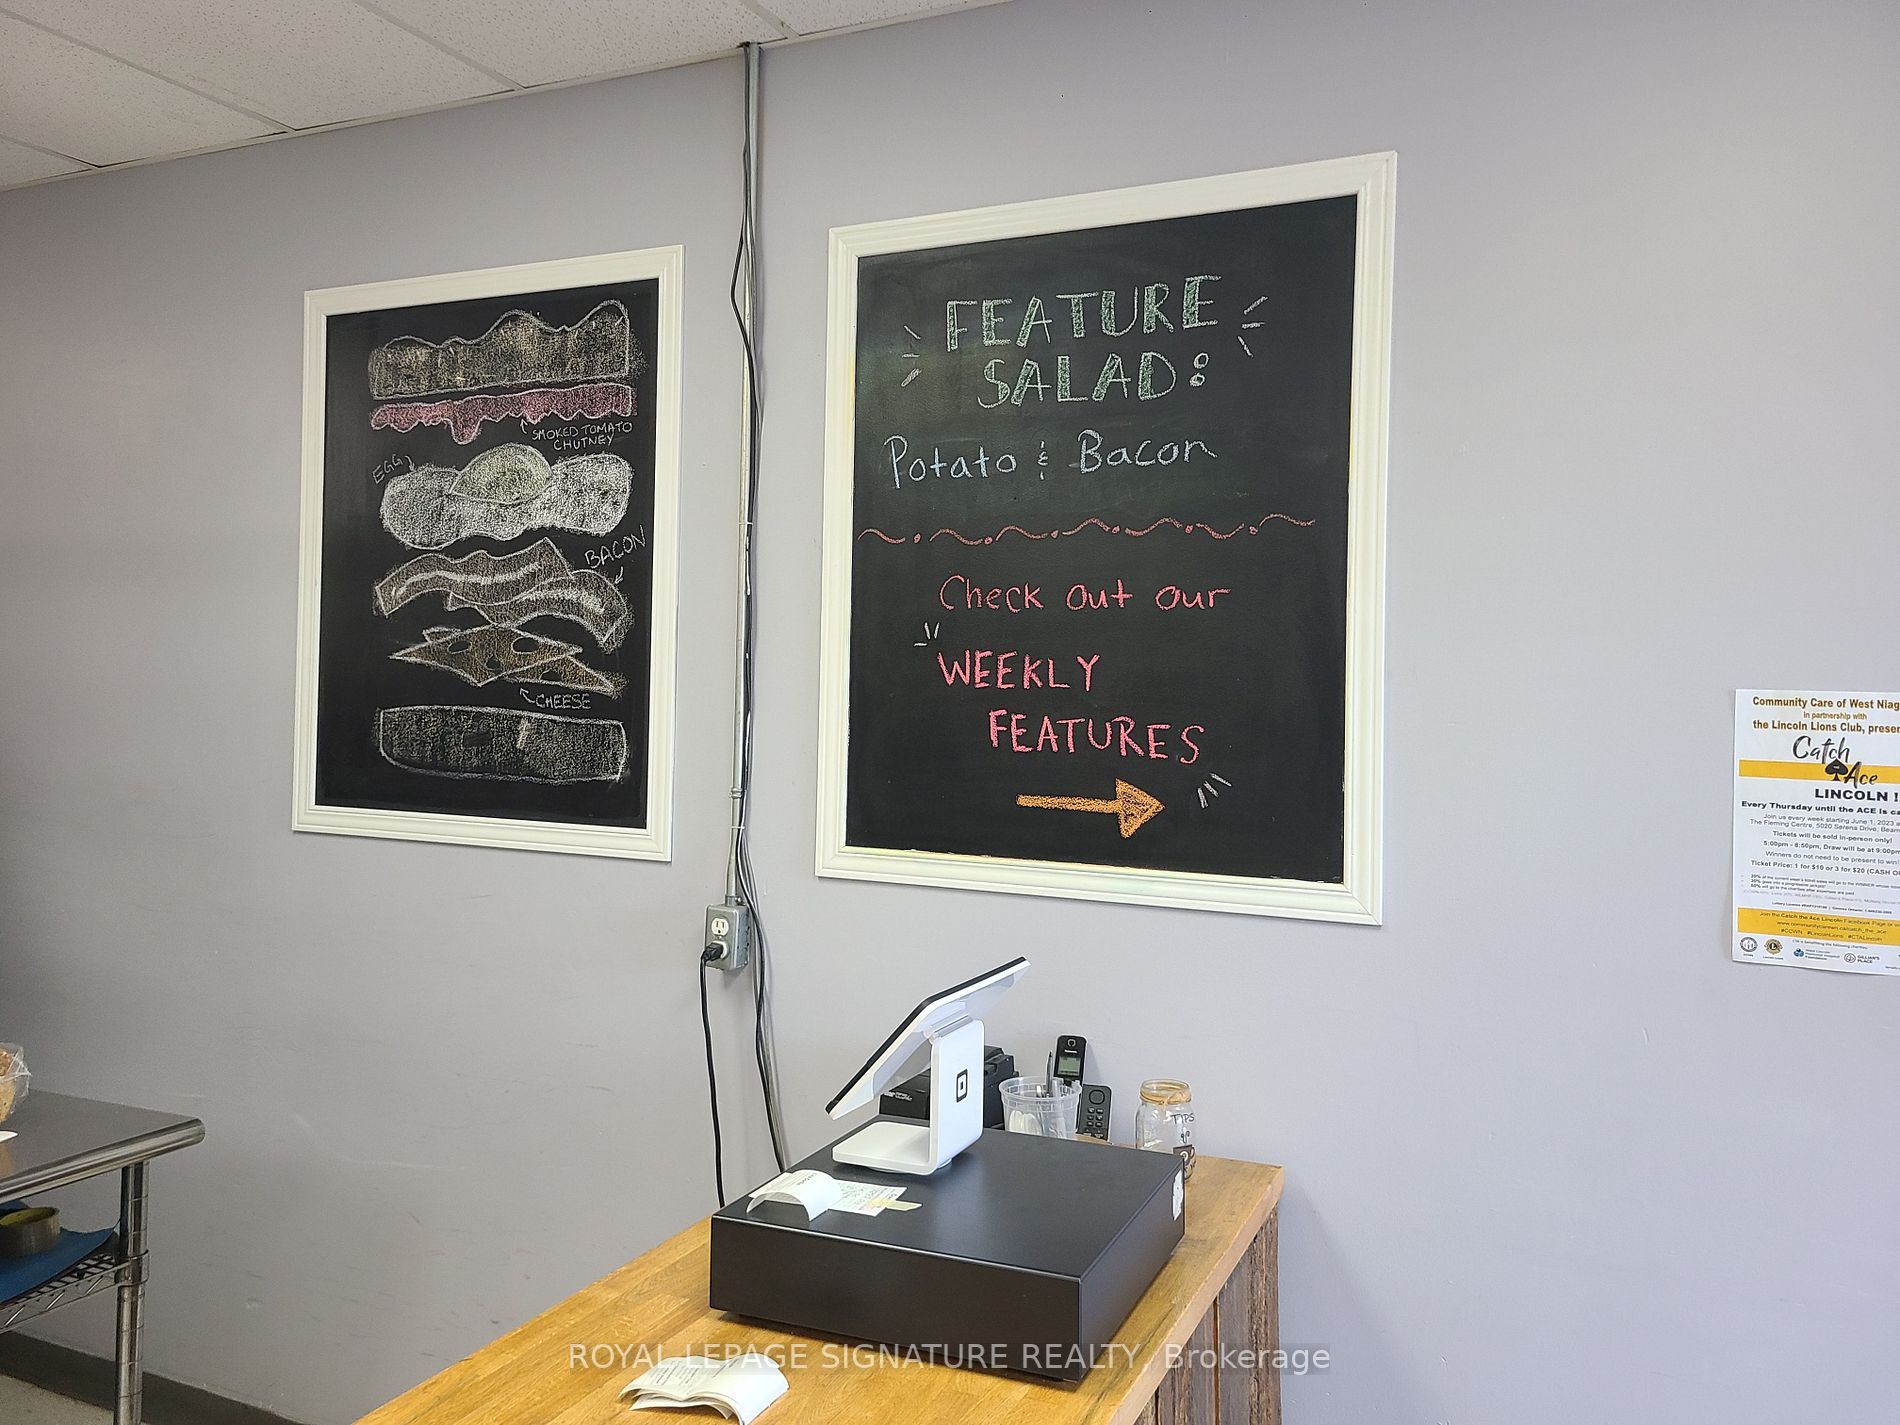 SMOKED TOMATO
CHUTNEY
EGG
BACON
CHEESE
FEATURE
SALAD:
Potato & Bacon
Check out our
WEEKLY
FEATURES
Community Care of West Niag
in partnership with
the Lincoln Lions Club, presen
Catch
Ace
LINCOLN !
Every Thursday until the ACE is ca
Join us every week starting June 1, 2023 a
The Fleming Centre, 5020 Serena Drive, Beam
Tickets will be sold in-person only!
5:00pm - 8:50pm, Draw will be at 9:00pm
Winners do not need to be present to win!
Ticket Price: 1 for $10 or 3 for $20 (CASH O
Join the Catch the Ace Lincoln Facebook Page or
#CCWN #LincolnLions #CTALincoln
GILLIAN'S
PLACE
Panasonic
TIPS
ROYAL LEPAGE SIGNATURE REALTY, Brokerage